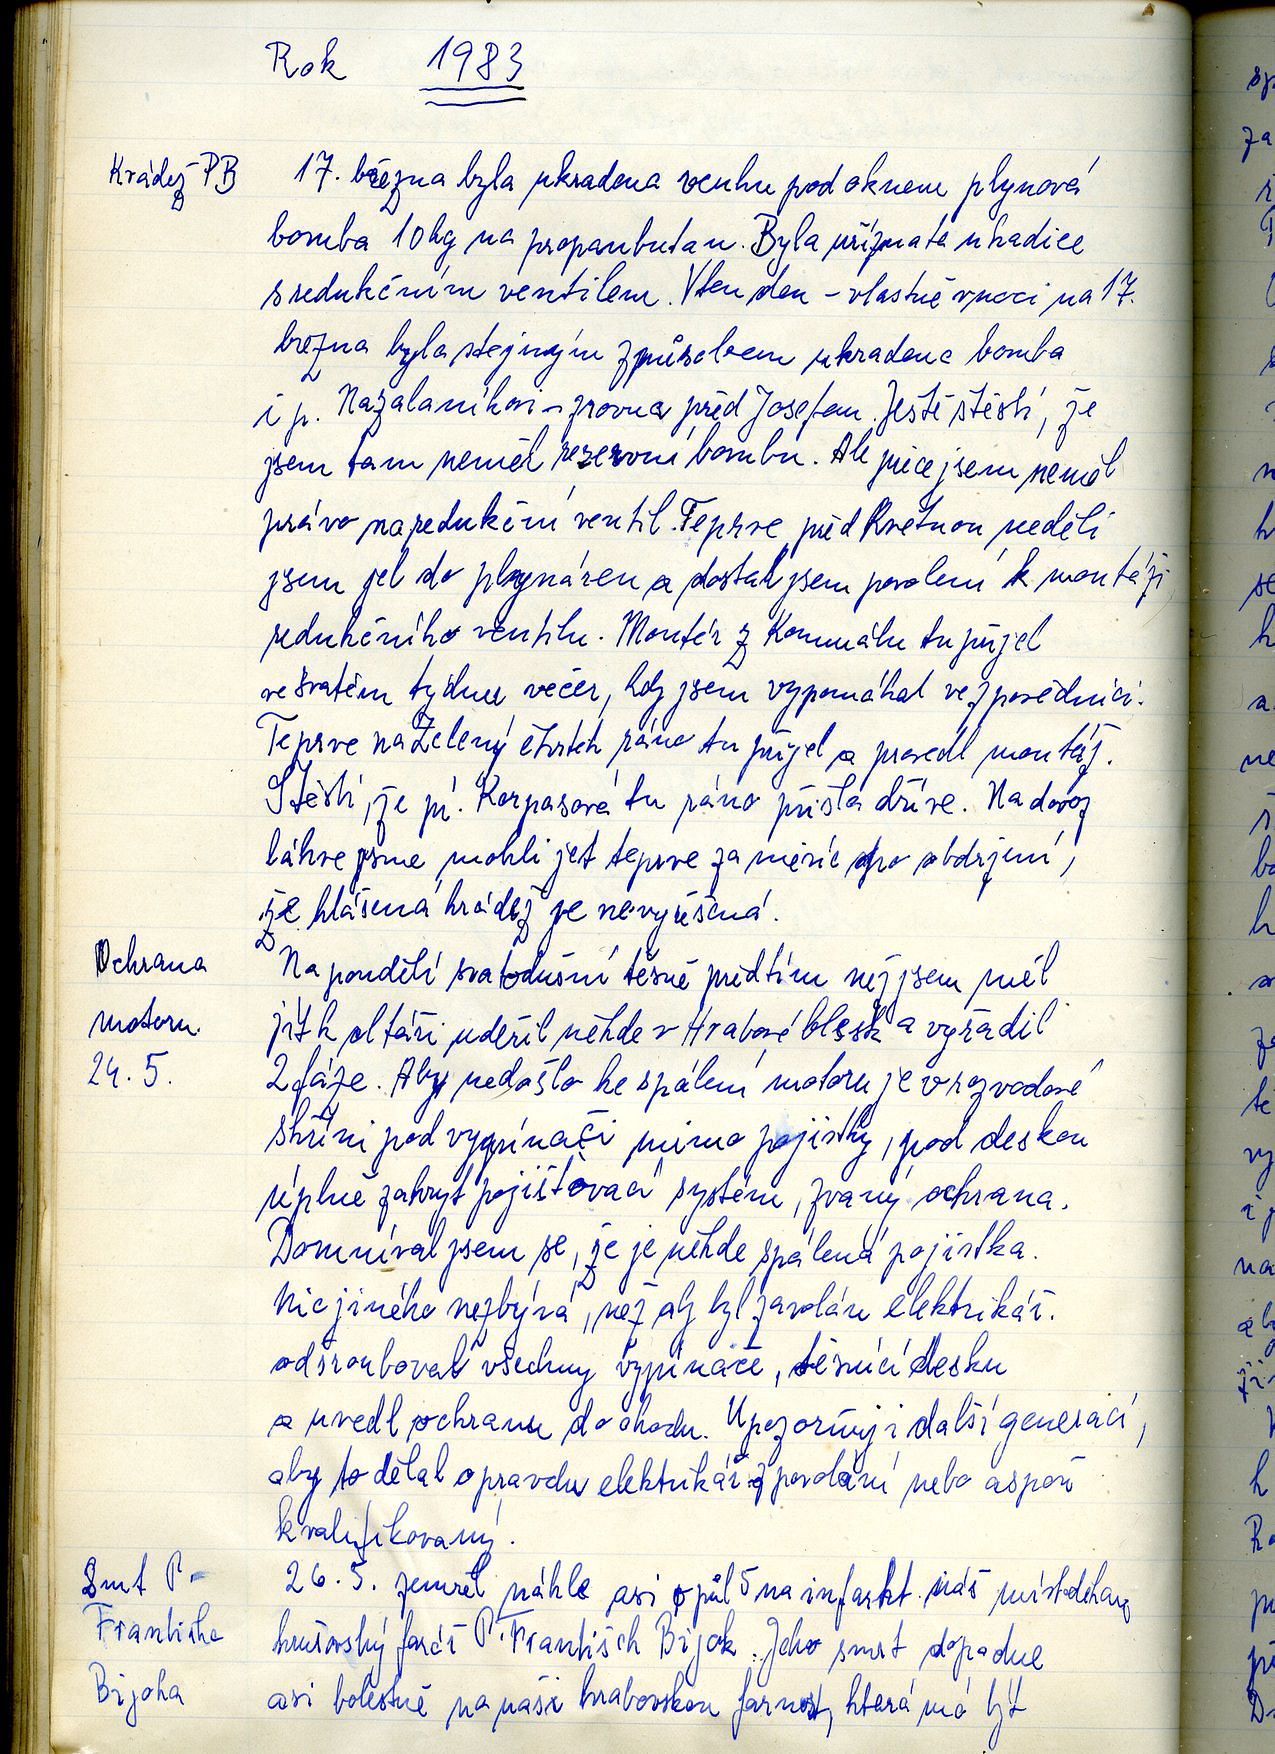 Rok 1983
Krádež PB
17. března byla ukradena venku pod oknem plynová
bomba 10 kg na propanbutan. Byla uříznuta u hadice
s redukčním ventilem. V ten den – vlastně v noci na 17.
března byla stejným způsobem ukradena bomba
i p. Nazalaníkovi – zrovna před Josefem. Ještě štěstí, že
jsem tam neměl rezervní bombu. Ale přece jsem neměl
právo na redukční ventil. Teprve před Květnou nedělí
jsem jel do plynáren a dostal jsem povolení k montáži
redukčního ventilu. Montér z Komunálu tu přijel
ve svatém týdnu večer, kdy jsem vypomáhal ve zpovědnici.
Teprve na Zelený čtvrtek ráno tu přijel a provedl montáž.
Štěstí, že pí. Korpasová tu ráno přišla dříve. Na dovoz
láhve jsme mohli jet teprve za měsíc po obdržení,
že hlášená krádež je nevyřešená.
Ochrana
motoru
24. 5.
Na pondělí svatodušní těsně předtím než jsem měl
jít k oltáři udeřil někde v Hrabové blesk a vyřadil
2 fáze. Aby nedošlo ke spálení motoru je v rozvodové
skříni pod vypínači mimo pojistky, pod deskou
úplně zakryt pojišťovací systém, zvaný ochrana.
Domníval jsem se, že je někde spálená pojistka.
Nic jiného nezbývá, než aby byl zavolán elektrikář.
odšrouboval všechny vypínače, těsnící desku
a uvedl ochranu do chodu. Upozorňuji další generaci,
aby to dělal opravdu elektrikář z povolání nebo aspoň
kvalifikovaný.
Smrt P.
Františka
Bijoka
26. 5. zemřel náhle asi o půl 5 na infarkt náš místoděkan
hrušovský farář P. František Bijok. Jeho smrt dopadne
asi bolestně na naši hrabovskou farnost, která má být